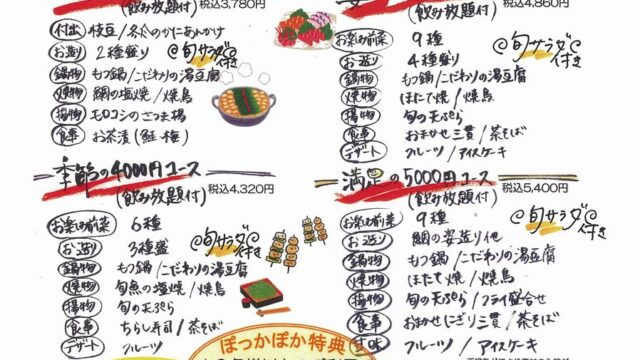 (飲み放題付) 税込3,780円
付出 枝豆/冬瓜のかにあんかけ
お造り 2種盛り
旬サラダ付き
鍋物 もつ鍋/こだわりの湯豆腐
焼物 鯛の塩焼/焼鳥
揚物 モロコシのさつま揚
食事 お茶漬(鮭・梅)
(飲み放題付) 税込4,860円
お楽しみ前菜 9種
お造り 4種盛り
旬サラダ付き
鍋物 もつ鍋/こだわりの湯豆腐
焼物 ほたて焼/焼鳥
揚物 旬の天ぷら
食事 おまかせ三貫/茶そば
デザート フルーツ/アイスケーキ
季節の4000円コース
(飲み放題付) 税込4,320円
お楽しみ前菜 6種
お造り 3種盛
旬サラダ付き
鍋物 もつ鍋/こだわりの湯豆腐
焼物 旬魚の塩焼/焼鳥
揚物 旬の天ぷら
食事 ちらし寿司/茶そば
デザート フルーツ
満足の5000円コース
(飲み放題付) 税込5,400円
お楽しみ前菜 9種
お造り 鯛の姿造り他
旬サラダ付き
鍋物 もつ鍋/こだわりの湯豆腐
焼物 ほたて焼/焼鳥
揚物 旬の天ぷら/フライ盛合せ
食事 おまかせにぎり三貫/茶そば
甘味 フルーツ/アイスケーキ
ぽっかぽか特典